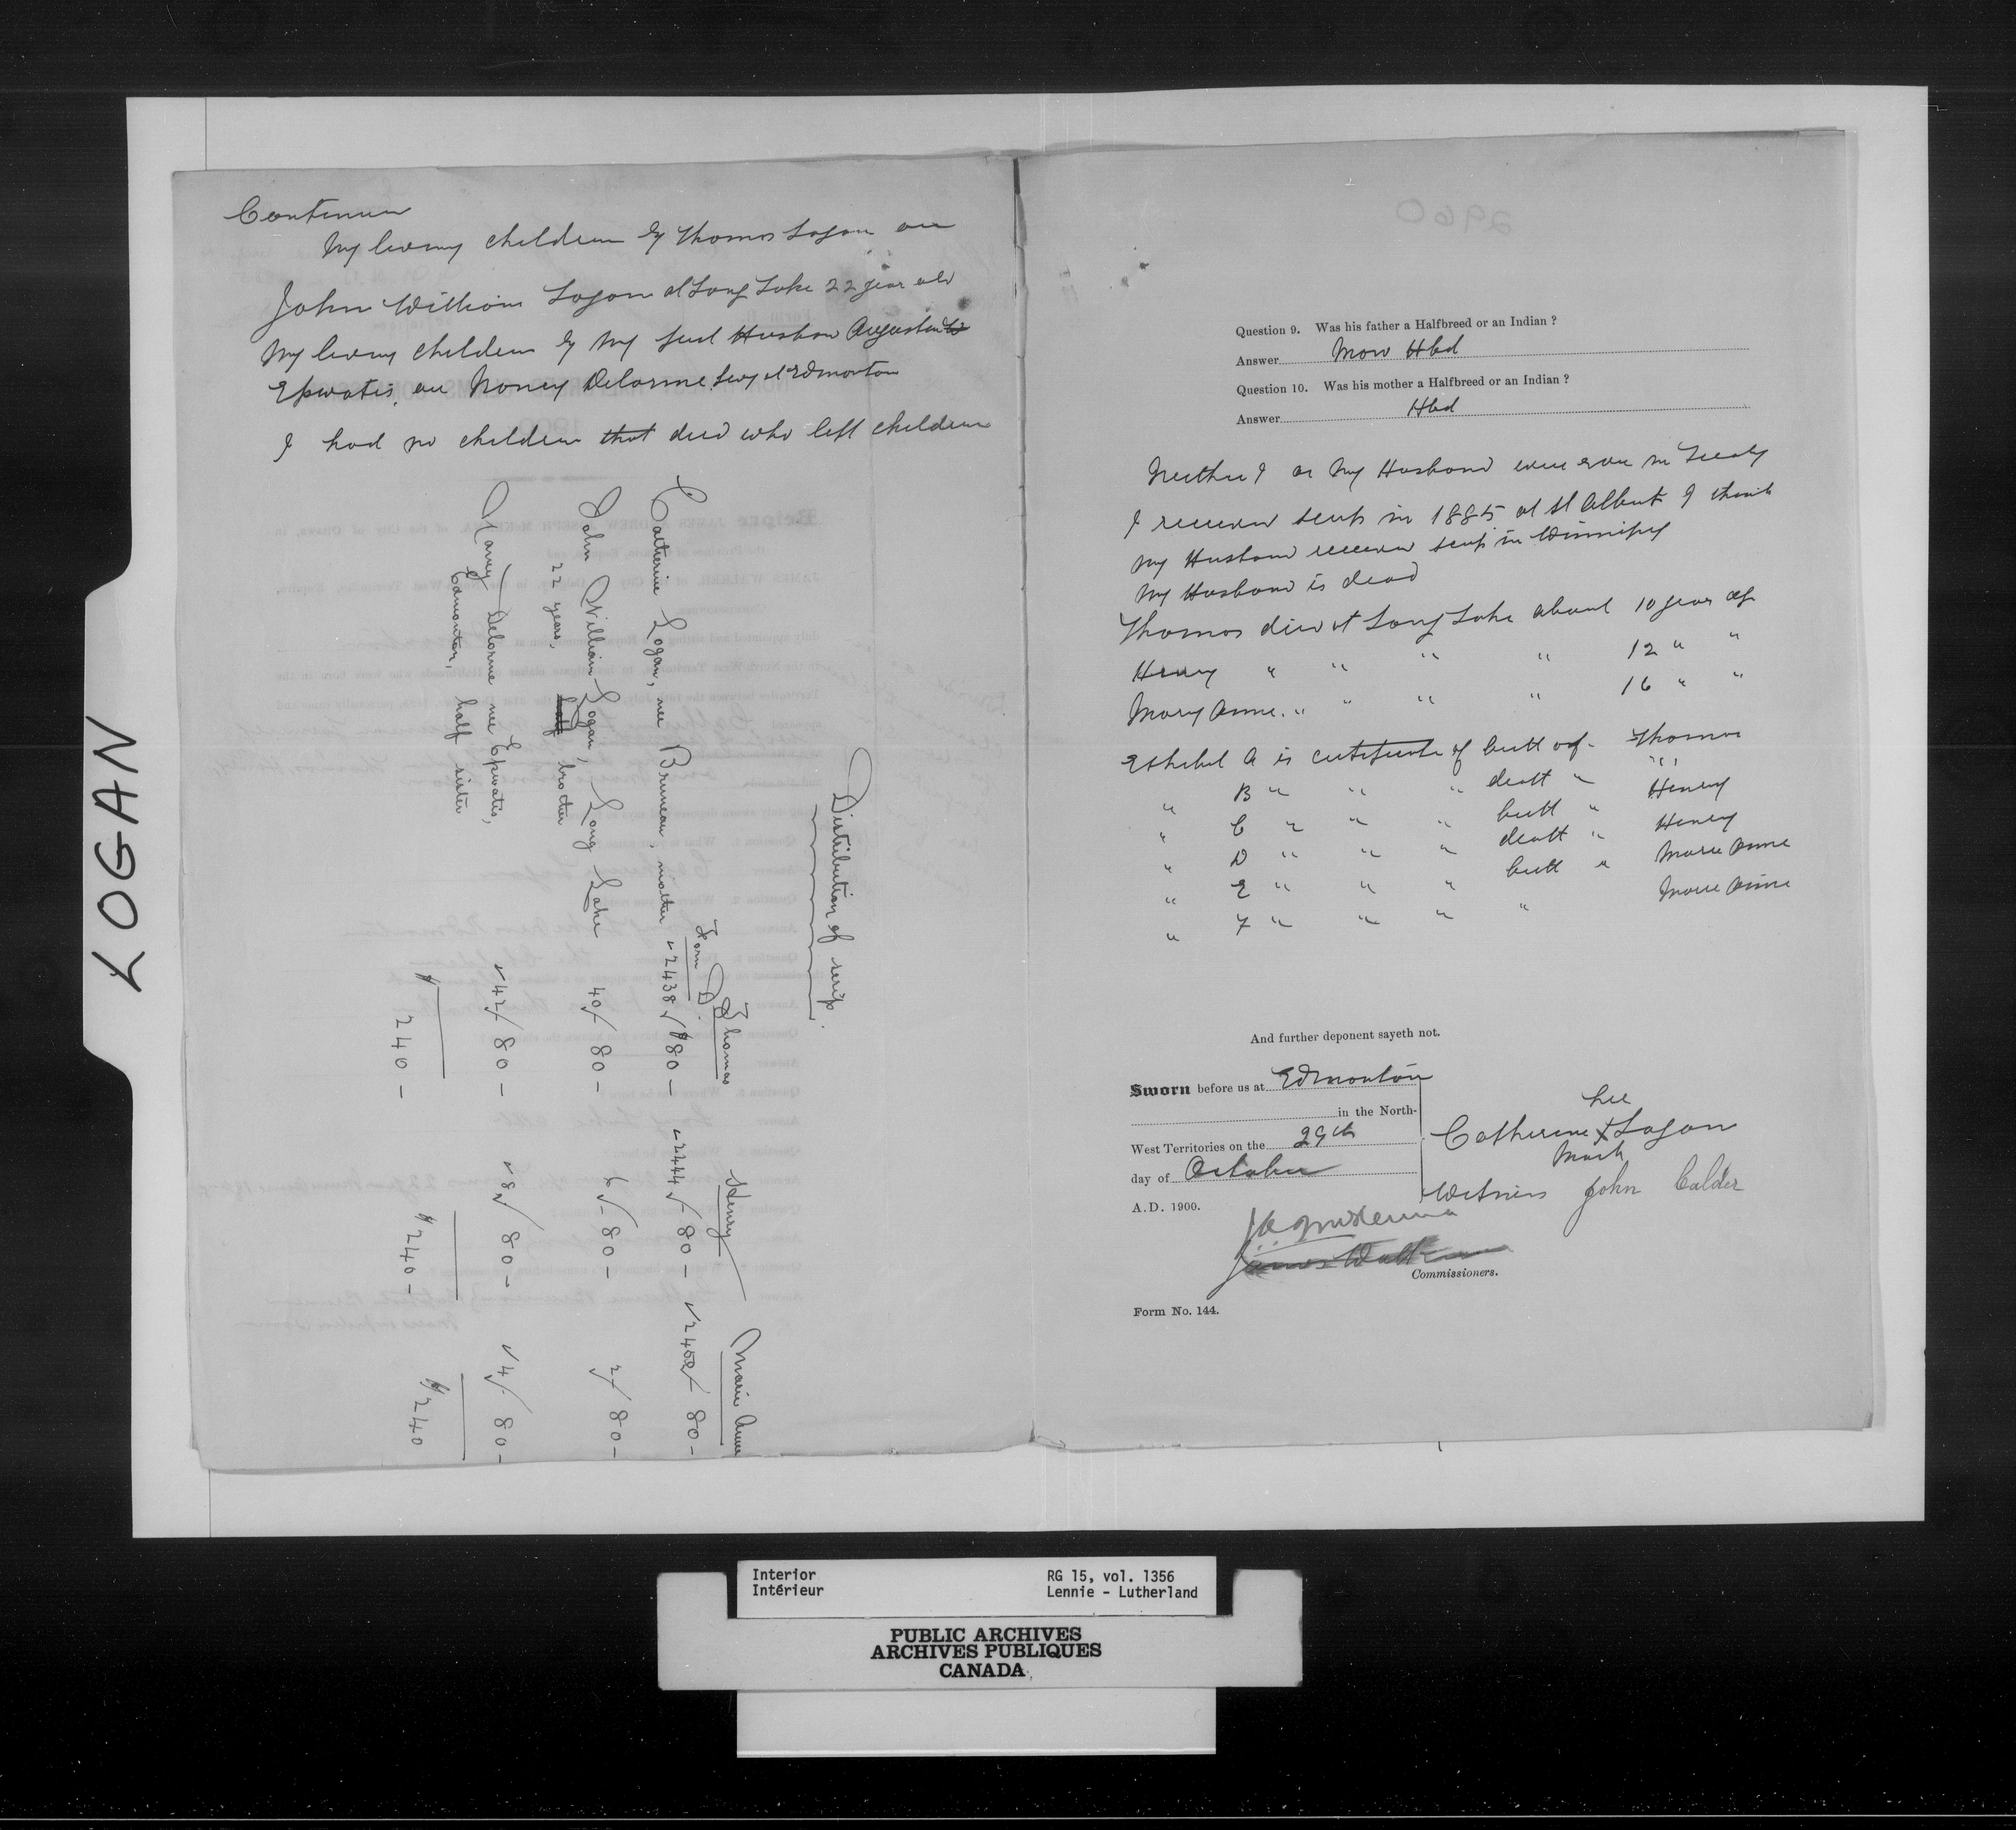 LOGAN
Continues
My living children by Thomas Logan are
John William Logan at Long Lake 22 year old
My living children by my first Husban Augustin
Epwatis. are Nancy Delorme livg at Edmonton
I had no children that died who left children
Distribution of scrip.
Form D. Thomas Henry Marie Anne
Catherine Logan, nee Bruneau, mother 2438 $80 - 2444 80 - 2450 80 -
John William Logan, Long Lake 40/ 80 - 6/ 80 - 2/ 80 -
22 years, half brother
Nancy Delorme nee Epwatis, 42/ 80 - 8/ 80 - 4/ 80 -
Edmonton, half sister
$ 240 - $ 240 - $ 240
2960
Question 9. Was his father a Halfbreed or an Indian ?
Answer Hbd
Question 10. Was his mother a Halfbreed or an Indian ?
Answer Hbd
Neither I or my Husband were ever in Treaty
I received scrip in 1885 at St Albert I think
My Husband received scrip in Winnipeg
My Husband is dead
Thomas died at Long Lake about 10 year ago
Henry " " " " 12 " "
Mary Anne. " " " " 16 " "
Exhibit A is certificate of birth of - Thomas
" B " " " death " "
" C " " " birth " Henry
" D " " " death " Henry
" E " " " birth " Marie Anne
" F " " " " Marie Anne
And further deponent sayeth not.
Sworn before us at Edmonton
in the North-
West Territories on the 29th
day of October
A.D. 1900.
her
Catherine X Logan
Mark
Witness John Calder
J A McKenna
James Walker
Commissioners.
Form No. 144.
Interior RG 15, vol. 1356
Intérieur Lennie - Lutherland
PUBLIC ARCHIVES
ARCHIVES PUBLIQUES
CANADA